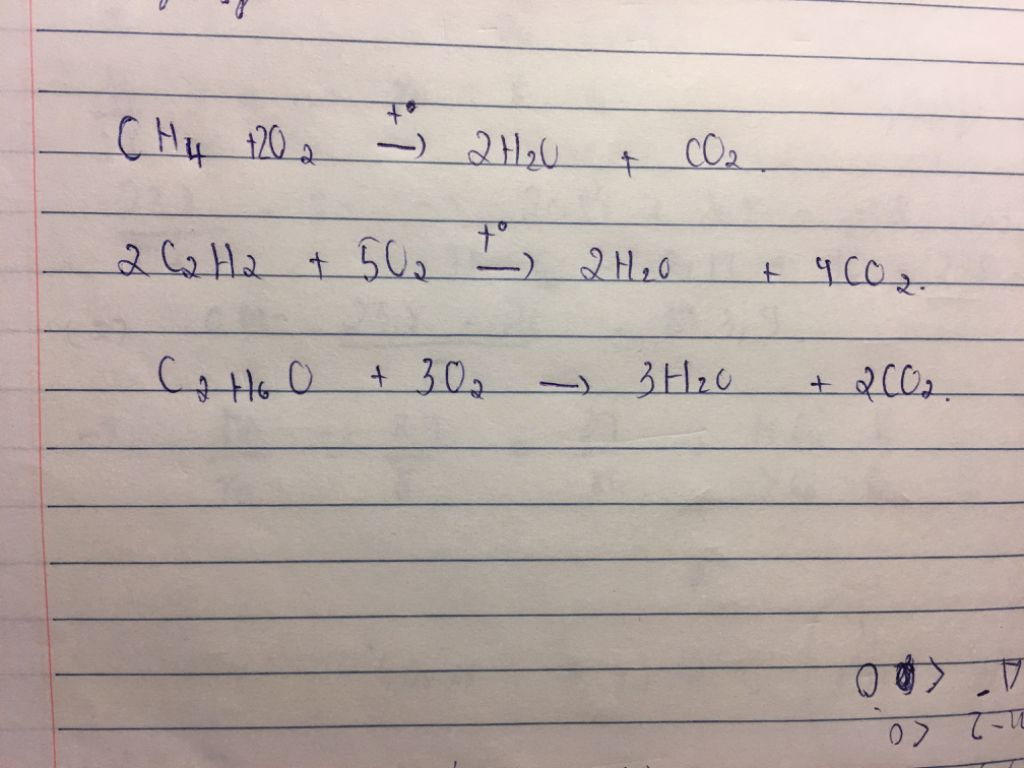 CH₄ +2O₂ →(t°) 2H₂O + CO₂.
2C₂H₂ + 5O₂ →(t°) 2H₂O + 4CO₂.
C₂H₆O + 3O₂ → 3H₂O + 2CO₂.